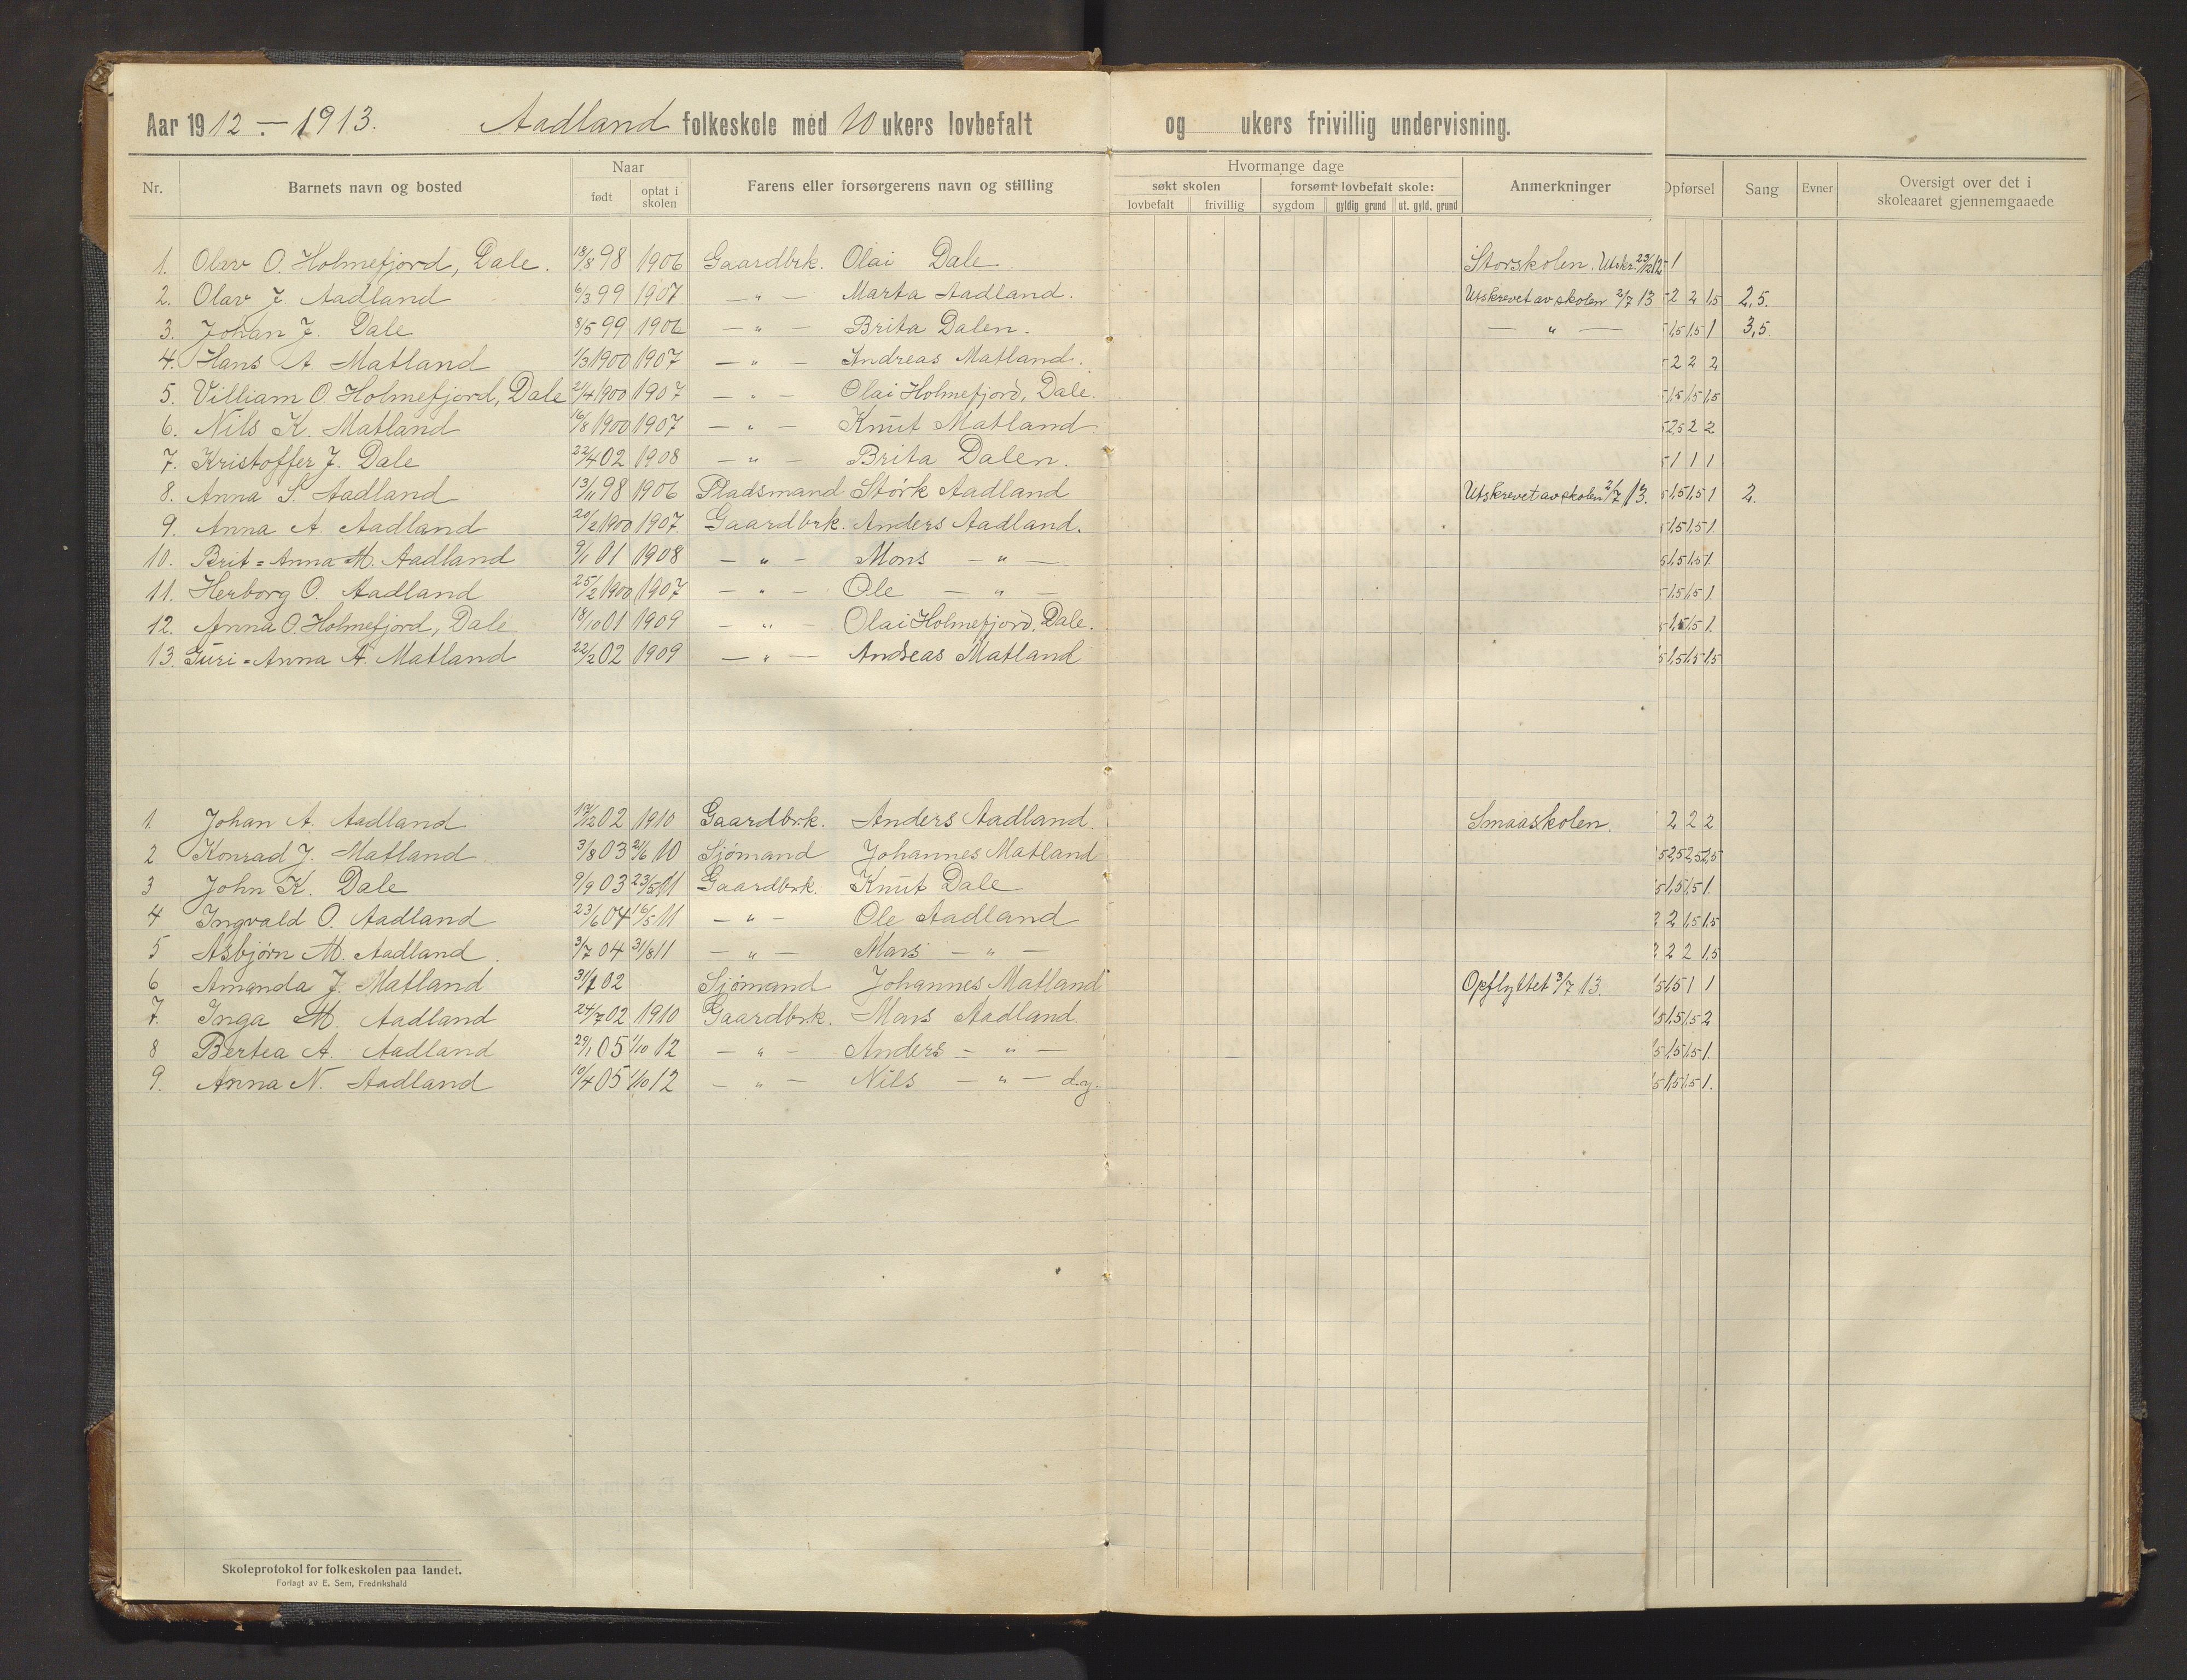 Aar 1912 - 1913. Aadland folkeskole med 10 ukers lovbefalt og ukers frivillig undervisning.
Naar Hvormange dage
Nr. Barnets navn og bosted født optat i skolen Farens eller forsørgerens navn og stilling søkt skolen forsømt lovbefalt skole: Anmerkninger Opførsel Sang Evner Oversigt over det i skoleaaret gjennemgaaede
lovbefalt frivillig sygdom gyldig grund ut. gyld. grund
1. Olav O. Holmefjord, Dale. 18/8 98 1906 Gaardbrk. Olai Dale Storskolen. Utskr. 1
2. Olav J. Aadland 6/3 99 1907 — " — Marta Aadland. Utskrevet av skolen 2/7 13 2 2 1,5 2,5.
3. Johan J. Dale 8/5 99 1906 — " — Brita Dalen. — " — 1,5 1,5 1 3,5.
4. Hans A. Matland 1/3 1900 1907 — " — Andreas Matland. 2 2 2
5. Villiam O. Holmefjord, Dale 2/4 1900 1907 — " — Olai Holmefjord, Dale. 1,5 1,5 1,5
6. Nils K. Matland 16/8 1900 1907 — " — Knut Matland. 2,5 2 2
7. Kristoffer J. Dale 22/4 02 1908 — " — Brita Dalen. 1 1 1
8. Anna S. Aadland 13/11 98 1906 Pladsmand Størk Aadland Utskrevet av skolen 2/7 13. 1,5 1,5 1 2.
9. Anna A. Aadland 20/2 1900 1907 Gaardbrk. Anders Aadland. 1,5 1,5 1.
10. Brit = Anna M. Aadland 9/1 01 1908 — " — Mons — " — 1,5 1,5 1.
11. Herborg O. Aadland 25/2 1900 1907 — " — Ole — " — 1,5 1,5 1
12. Anna O. Holmefjord, Dale 18/10 01 1909 — " — Olai Holmefjord, Dale. 1,5 1,5 1.
13. Guri = Anna A. Matland 22/2 02 1909 — " — Andreas Matland 1,5 1,5 1,5
1. Johan A. Aadland 02 1910 Gaardbrk. Anders Aadland. Smaaskolen. 2 2 2
2 Konrad J. Matland 3/8 03 2/6 10 Sjømand Johannes Matland 2,5 2,5 2,5
3 John K. Dale 9/9 03 23/5 11 Gaardbrk. Knut Dale 1,5 1,5 1.
4 Ingvald O. Aadland 23/6 04 16/5 11 — " — Ole Aadland 2 1,5 1,5
5 Asbjørn M. Aadland. 3/7 04 31/8 11 — " — Mons — " — 2 2 1,5
6 Amanda J. Matland 31/1 02 Sjømand Johannes Matland Opflyttet 3/7 13. 1,5 1 1
7. Inga M. Aadland 24/7 02 1910 Gaardbrk. Mons Aadland. 1,5 1,5 2
8 Bertea A. Aadland 29/1 05 1/10 12 — " — Anders — " — 1,5 1,5 1.
9. Anna N. Aadland 10/4 05 1/10 12 — " — Nils — " — d.y. 1,5 1,5 1.
Skoleprotokol for folkeskolen paa landet.
Forlagt av E. Sem, Fredrikshald